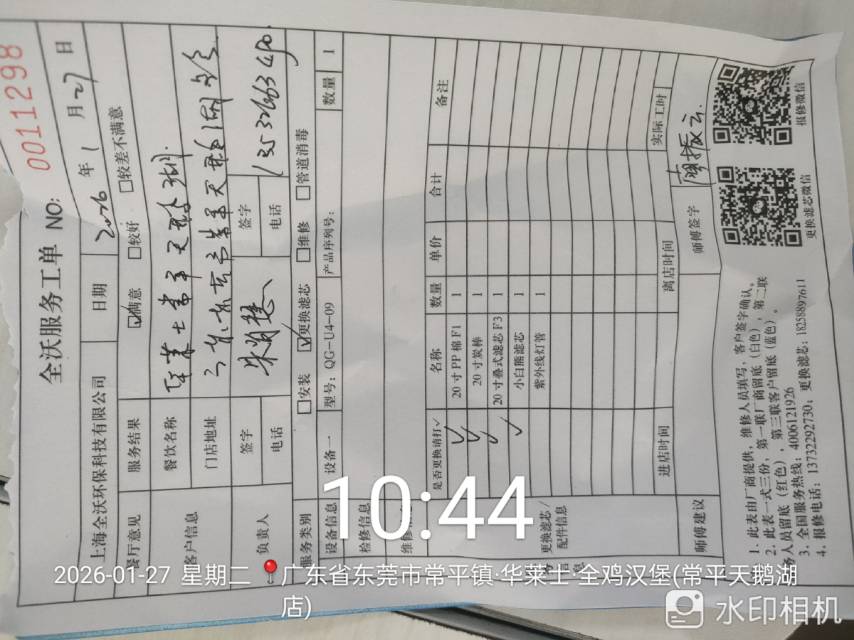 全沃服务工单 NO: 0011298
上海全沃环保科技有限公司 日期 2026 年 1 月 27 日
餐厅意见 服务结果 ☑满意 □较好 □较差不满意
客户信息 餐饮名称 华莱士常平天鹅湖
门店地址
负责人 签字 签字
电话 电话 13532663490
服务类别 □安装 ☑更换滤芯 □维修 □管道消毒
设备信息 设备一 型号: QG-U4-09 产品序列号: 数量 1
检修信息
更换滤芯/配件信息
是否更换请打✓ 名称 数量 单价 合计 备注
✓ 20 寸 PP 棉 F1 1
✓ 20 寸炭棒 1
✓ 20 寸叠式滤芯 F3 1
✓ 小白熊滤芯 1
紫外线灯管 1
进店时间 离店时间 实际工时
师傅建议 师傅签字
1. 此表由厂商提供,维修人员填写,客户签字确认。
2. 此表一式三份,第一联厂商留底(白色),第二联
务人员留底(红色),第三联客户留底(蓝色)。
3. 全国服务热线: 4006121926
4. 报修电话: 13732292730; 更换滤芯: 18258897611
更换滤芯微信
报修微信
10:44
2026-01-27 星期二 广东省东莞市常平镇·华莱士·全鸡汉堡(常平天鹅湖
店)
水印相机